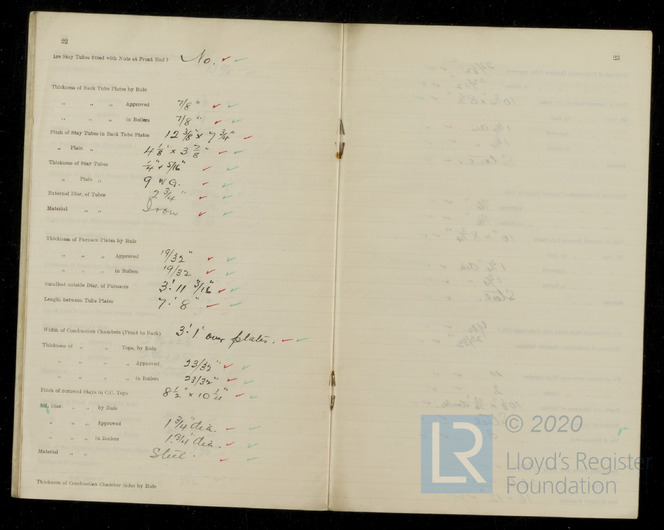 22
Are Stay Tubes fitted with Nuts at Front End? No.
Thickness of Back Tube Plates by Rule
„ „ „ Approved 7/8"
„ „ „ in Boilers 7/8"
Pitch of Stay Tubes in Back Tube Plates 12 3/8" x 7 3/4"
„ Plain „ 4 1/8" x 3 7/8"
Thickness of Stay Tubes 1/4" & 5/16"
„ Plain „ 9 W.G.
External Diar. of Tubes 2 3/4"
Material „ „ Iron
Thickness of Furnace Plates by Rule
„ „ „ Approved 19/32"
„ „ „ in Boilers 19/32
Smallest outside Diar. of Furnaces 3' 11 3/16"
Length between Tube Plates 7' 8"
Width of Combustion Chambers (Front to Back) 3' 1" over plates.
Thickness of „ „ Tops, by Rule
„ „ „ „ Approved 23/32"
„ „ „ „ in Boilers 23/32"
Pitch of Screwed Stays in C.C. Tops 8 1/2" x 10 1/4"
Eff. Diar. „ „ by Rule
„ „ „ Approved 1 3/4" dia.
„ „ „ in Boilers 1 3/4" dia.
Material „ „ Steel
Thickness of Combustion Chamber Sides by Rule
23
LR © 2020
Lloyd's Register
Foundation